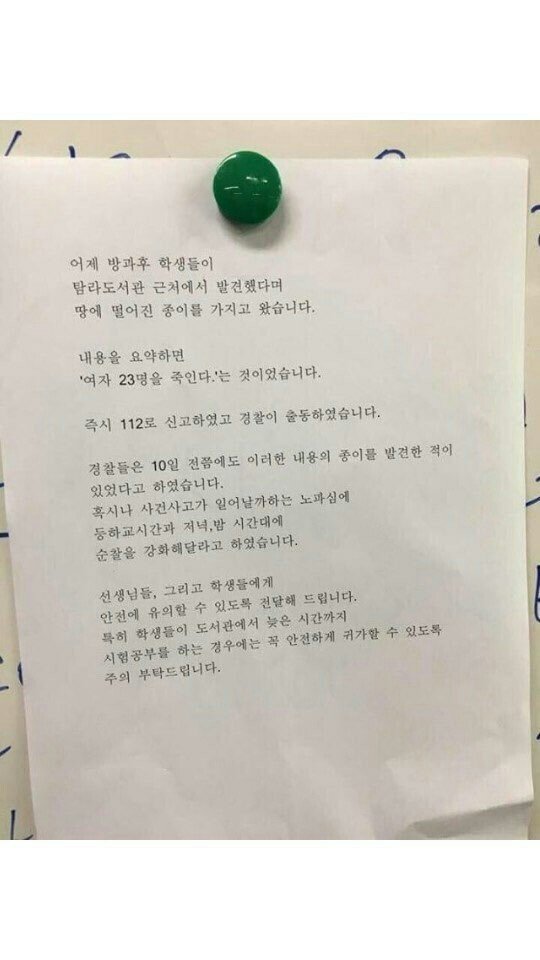 어제 방과후 학생들이
탐라도서관 근처에서 발견했다며
땅에 떨어진 종이를 가지고 왔습니다.
내용을 요약하면
'여자 23명을 죽인다.'는 것이었습니다.
즉시 112로 신고하였고 경찰이 출동하였습니다.
경찰들은 10일 전쯤에도 이러한 내용의 종이를 발견한 적이
있었다고 하였습니다.
혹시나 사건사고가 일어날까하는 노파심에
등하교시간과 저녁,밤 시간대에
순찰을 강화해달라고 하였습니다.
선생님들, 그리고 학생들에게
안전에 유의할 수 있도록 전달해 드립니다.
특히 학생들이 도서관에서 늦은 시간까지
시험공부를 하는 경우에는 꼭 안전하게 귀가할 수 있도록
주의 부탁드립니다.